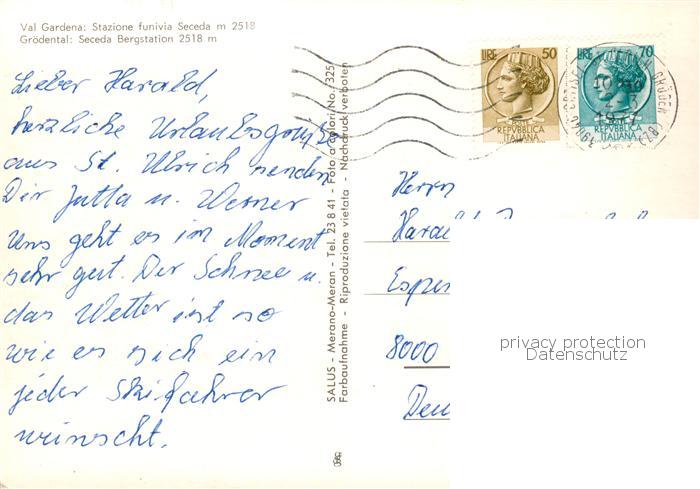 Val Gardena: Stazione funivia Seceda m 2518
Grödental: Seceda Bergstation 2518 m
Lieber Harald,
herzliche Urlaubsgrüße
aus St. Ulrich senden
Dir Jutta u. Werner
Uns geht es im Moment
sehr gut. Der Schnee u.
das Wetter ist so
wie es sich ein
jeder Skifahrer
wünscht.
SALUS - Merano-Meran - Tel. 23 8 41 - Foto a colori No. 325
Farbaufnahme - Riproduzione vietata - Nachdruck verboten
LIRE 50
POSTE
REPVBBLICA
ITALIANA
LIRE 70
POSTE
REPVBBLICA
ITALIANA
Herrn
8000
privacy protection
Datenschutz